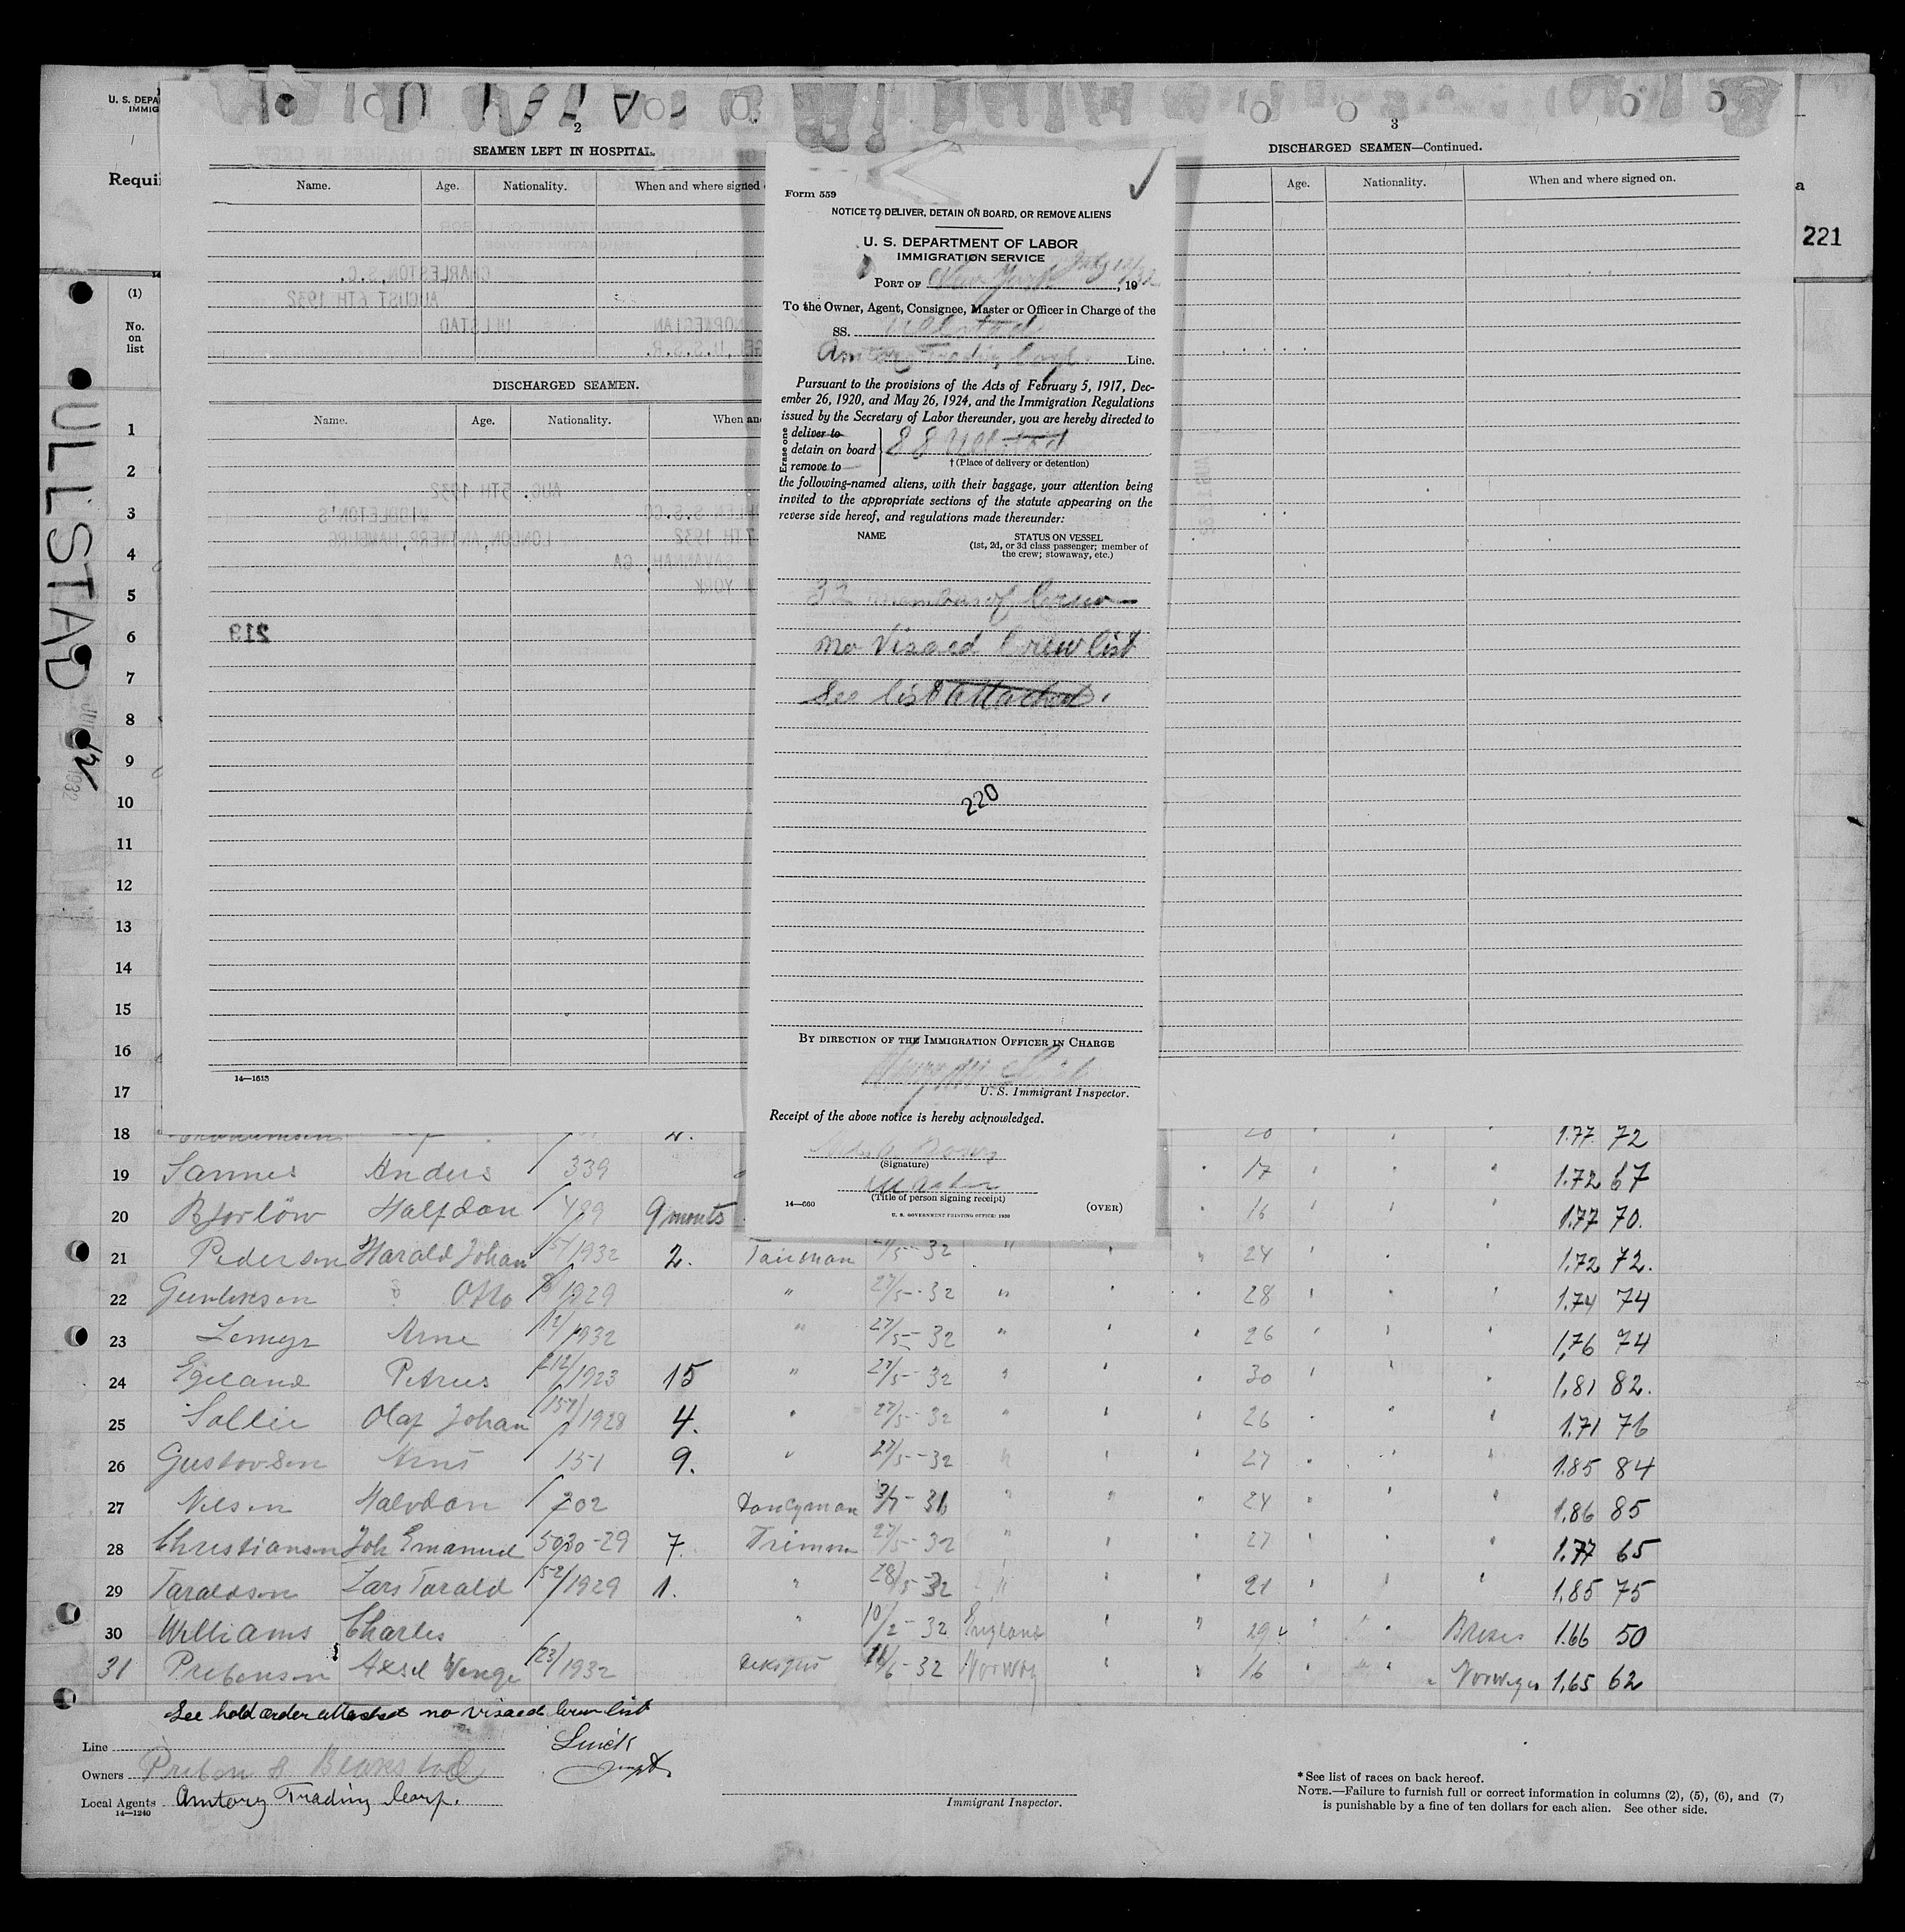 U. S. DEPA
IMMIG
Requi
a
221
(1)
No.
on
list
ULLSTAD
2
SEAMEN LEFT IN HOSPITAL.
Name. Age. Nationality. When and where signed
CHARLESTON, S.C.
AUGUST 6TH 1932
NORWEGIAN ULLSTAD
U.S.S.R.
DISCHARGED SEAMEN.
Name. Age. Nationality. When and
AUG. 5TH 1932
MIDDLETON'S
7TH 1932 LONDON, ANTWERP, HAMBURG
SAVANNAH, GA
YORK
219
14—1615
3
DISCHARGED SEAMEN—Continued.
Age. Nationality. When and where signed on.
Form 559
NOTICE TO DELIVER, DETAIN ON BOARD, OR REMOVE ALIENS
U. S. DEPARTMENT OF LABOR
IMMIGRATION SERVICE
PORT OF New York July 12, 1932
To the Owner, Agent, Consignee, Master or Officer in Charge of the
SS. Ullstad
Amtorg Trading Corp. Line.
Pursuant to the provisions of the Acts of February 5, 1917, Dec-
ember 26, 1920, and May 26, 1924, and the Immigration Regulations
issued by the Secretary of Labor thereunder, you are hereby directed to
Erase one
deliver to
detain on board SS Ullstad
remove to
† (Place of delivery or detention)
the following-named aliens, with their baggage, your attention being
invited to the appropriate sections of the statute appearing on the
reverse side hereof, and regulations made thereunder:
NAME STATUS ON VESSEL
(1st, 2d, or 3d class passenger; member of
the crew; stowaway, etc.)
32 members of Crew
no Visaed Crew list
See list attached.
220
BY DIRECTION OF THE IMMIGRATION OFFICER IN CHARGE
U. S. Immigrant Inspector.
Receipt of the above notice is hereby acknowledged.
(Signature)
Master
(Title of person signing receipt)
14—660 (OVER)
U. S. GOVERNMENT PRINTING OFFICE: 1930
1
2
3
4
5
6
7
8
9
10
11
12
13
14
15
16
17
18 20 1.77 72
19 Sannes Anders 339 17 1.72 67
20 Bjorlöw Halfdan 489 9 monts 16 1.77 70.
21 Pederson Harald Johan 15/1932 2. Fairman 27/5-32 " 24 1.72 72.
22 Gunleksen Otto 8/1929 " 27/5-32 " 28 1.74 74
23 Lemyr Arne 12/1932 " 27/5-32 " 26 1,76 74
24 Egeland Petrus 212/1923 15 " 27/5-32 " 30 1,81 82.
25 Sollie Olaf Johan 157/1928 4. " 27/5-32 " 26 1.71 76
26 Gustavson Arns 151 9. " 27/5-32 " 27 1.85 84
27 Nilsen Halvdan 202 Donkyman 3/7-31 " 24 1.86 85
28 Christiansen Joh Emanuel 5030-29 7. Trimm 27/5-32 " 27 1.77 65
29 Taraldson Lars Tarald 52/1929 1. " 28/5-32 " 21 1,85 75
30 Williams Charles " 10/2-32 England 29 1.66 50
31 Prebenson Axsel Wenge 23/1932 16/6-32 Norway 16 Norwegn 1,65 62
See hold order attached no visaed Crew list
Line
Owners
Local Agents Amtorg Trading Corp.
14—1240
Immigrant Inspector.
* See list of races on back hereof.
NOTE.—Failure to furnish full or correct information in columns (2), (5), (6), and (7)
is punishable by a fine of ten dollars for each alien. See other side.